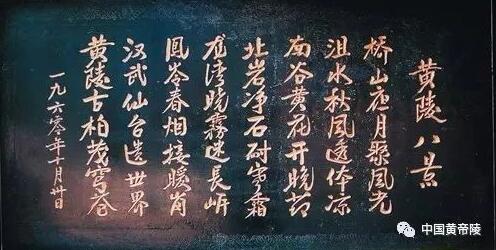 黄陵八景
桥山夜月聚风光
沮水秋风透体凉
南谷黄花开晚节
北岩净石耐寒霜
龙湾晓霧迷長岍
鳳岺春烟接暖肖
汉武仙台造世界
黄陵古柏茂穹苍
一九六零年十月卅日
中国黄帝陵